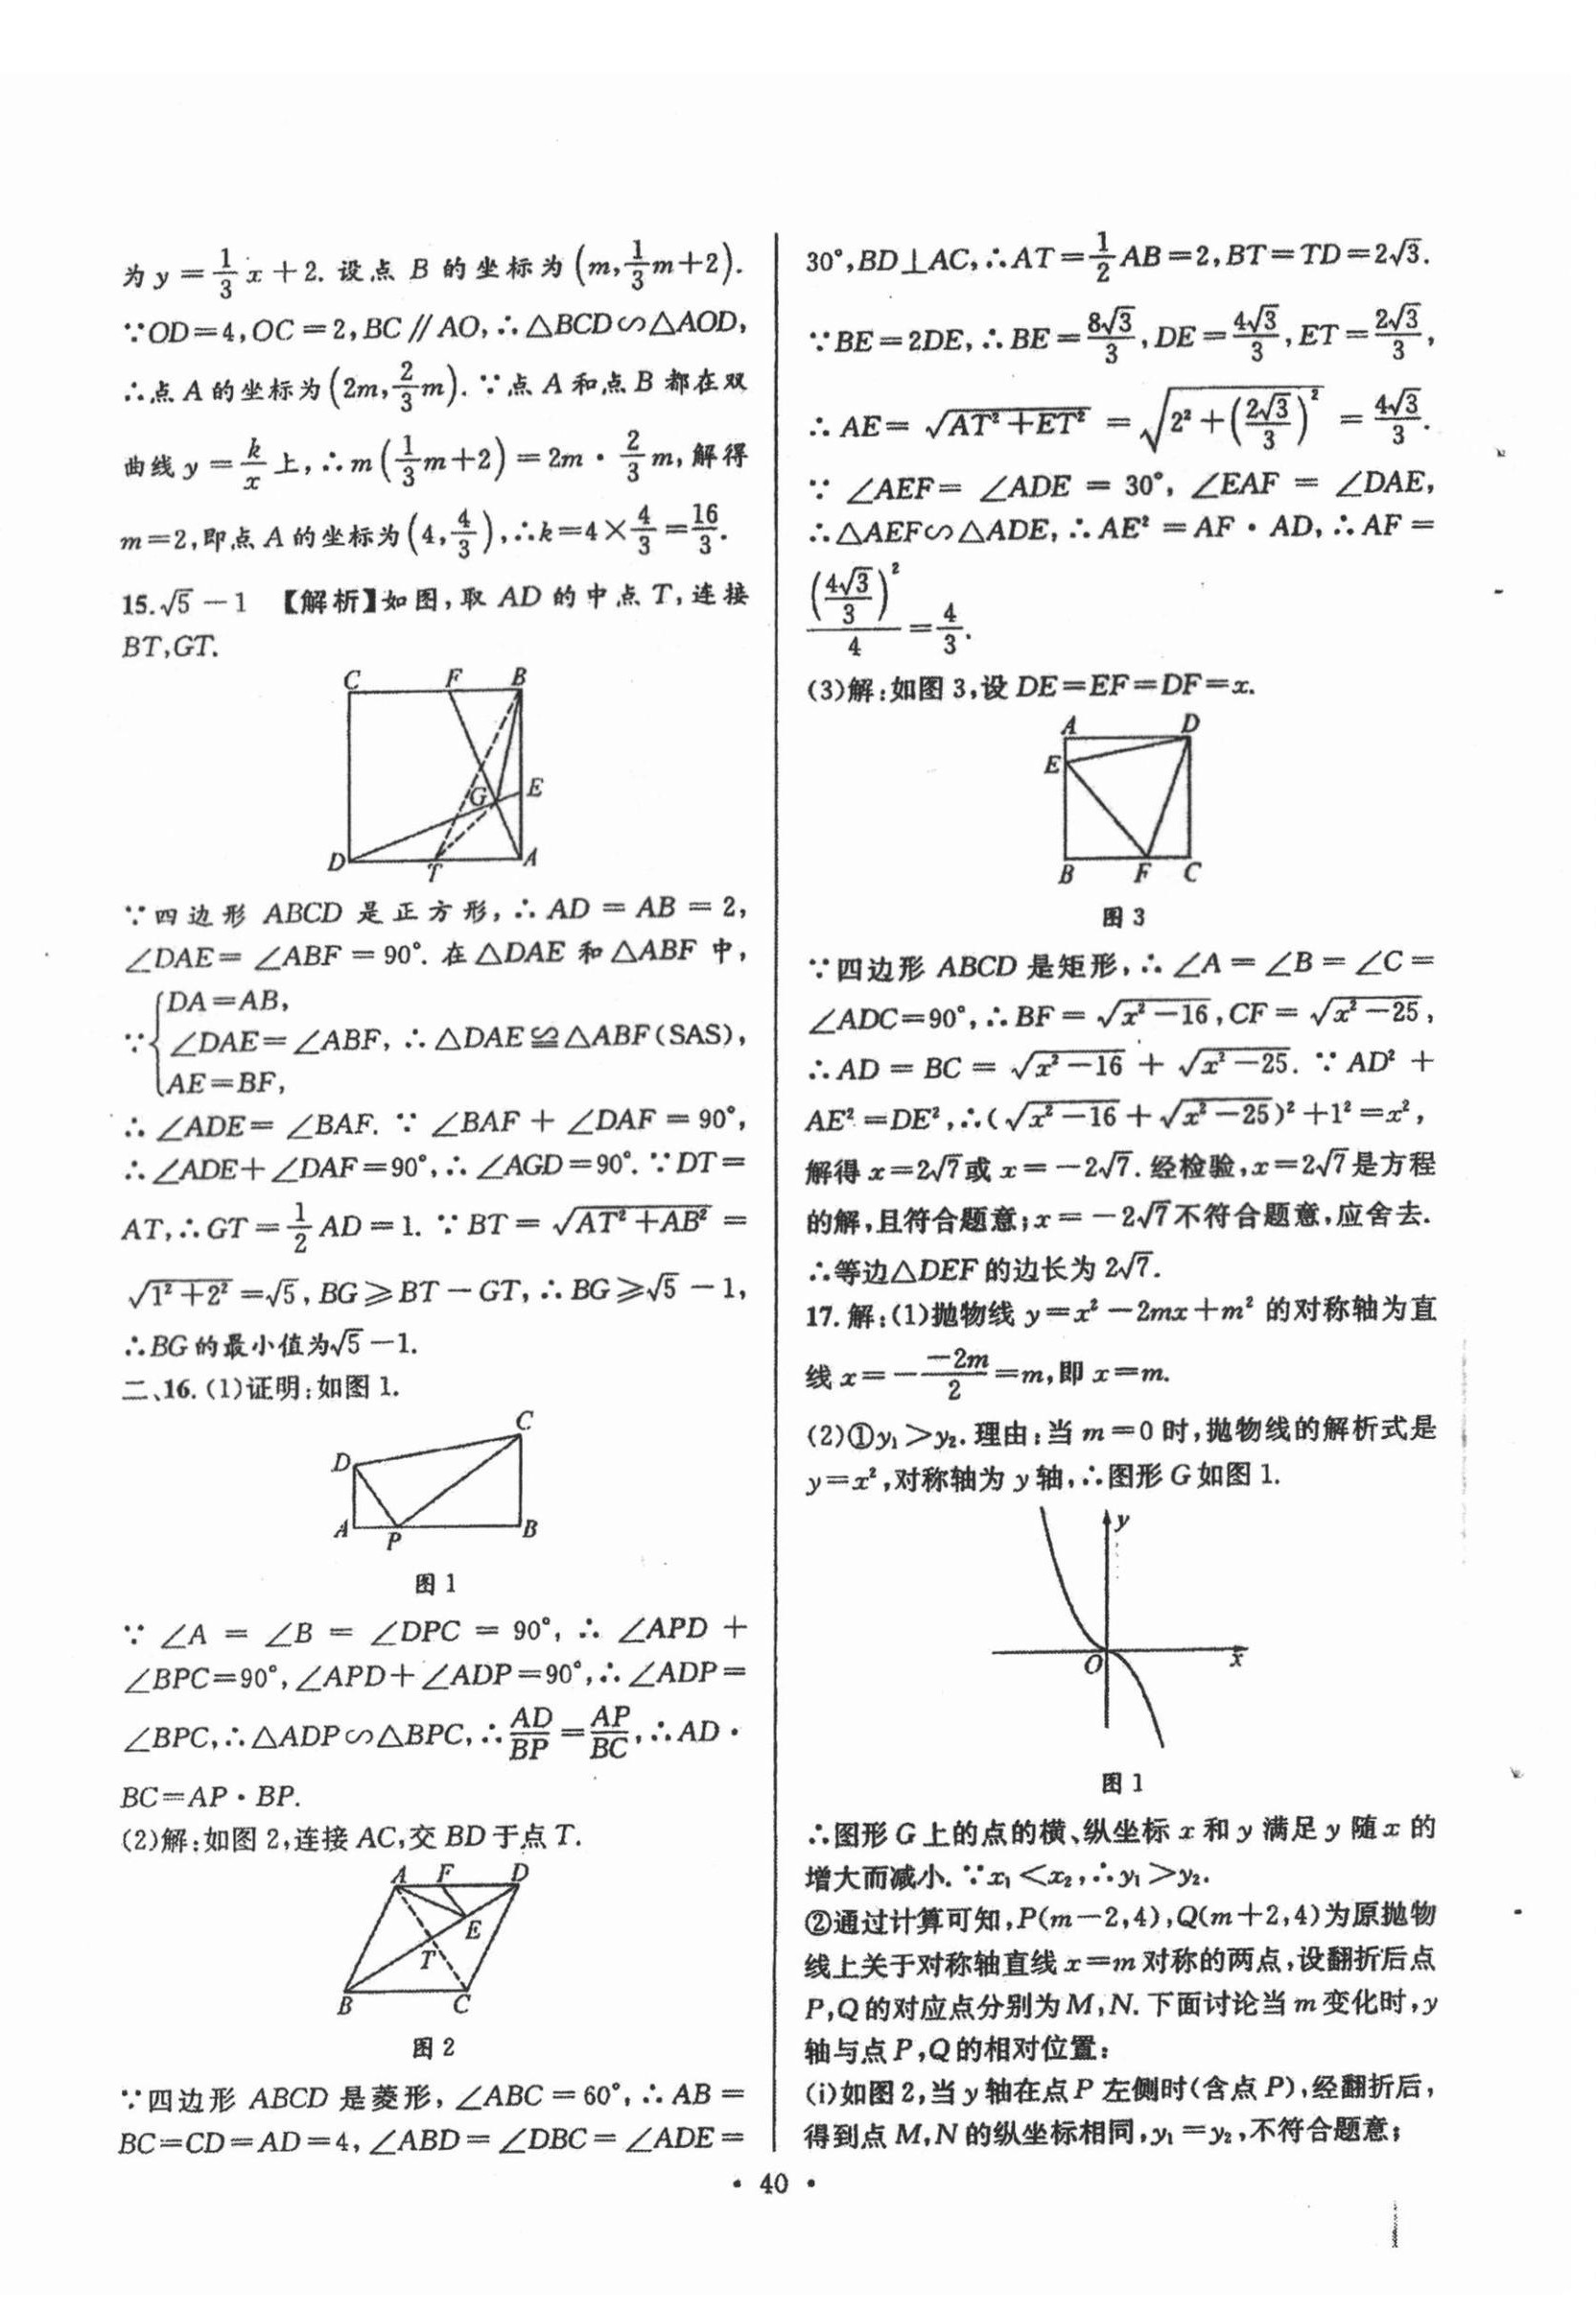 为 y＝1/3 x＋2. 设点 B 的坐标为(m,1/3 m＋2).
∵OD＝4,OC＝2,BC∥AO,∴△BCD∽△AOD,
∴点 A 的坐标为(2m,2/3 m).∵点 A 和点 B 都在双
曲线 y＝k/x 上,∴m(1/3 m＋2)＝2m·2/3 m,解得
m＝2,即点 A 的坐标为(4,4/3),∴k＝4×4/3＝16/3.
15.√5－1 【解析】如图,取 AD 的中点 T,连接
BT,GT.
C F B
G E
D T A
∵四边形 ABCD 是正方形,∴AD＝AB＝2,
∠DAE＝∠ABF＝90°.在△DAE 和△ABF 中,
DA＝AB,
∵{∠DAE＝∠ABF,∴△DAE≌△ABF(SAS),
AE＝BF,
∴∠ADE＝∠BAF.∵∠BAF＋∠DAF＝90°,
∴∠ADE＋∠DAF＝90°,∴∠AGD＝90°.∵DT＝
AT,∴GT＝1/2 AD＝1.∵BT＝√(AT²＋AB²)＝
√(1²＋2²)＝√5,BG≥BT－GT,∴BG≥√5－1,
∴BG的最小值为√5－1.
二、16.(1)证明:如图 1.
C
D
A P B
图 1
∵∠A＝∠B＝∠DPC＝90°,∴∠APD＋
∠BPC＝90°,∠APD＋∠ADP＝90°,∴∠ADP＝
∠BPC,∴△ADP∽△BPC,∴AD/BP＝AP/BC,∴AD·
BC＝AP·BP.
(2)解:如图 2,连接 AC,交 BD 于点 T.
A F D
E
T
B C
图 2
∵四边形 ABCD 是菱形,∠ABC＝60°,∴AB＝
BC＝CD＝AD＝4,∠ABD＝∠DBC＝∠ADE＝
30°,BD⊥AC,∴AT＝1/2 AB＝2,BT＝TD＝2√3.
∵BE＝2DE,∴BE＝8√3/3,DE＝4√3/3,ET＝2√3/3,
∴AE＝√(AT²＋ET²)＝√(2²＋(2√3/3)²)＝4√3/3.
∵∠AEF＝∠ADE＝30°,∠EAF＝∠DAE,
∴△AEF∽△ADE,∴AE²＝AF·AD,∴AF＝
(4√3/3)²/4＝4/3.
(3)解:如图 3,设 DE＝EF＝DF＝x.
A D
E
B F C
图 3
∵四边形 ABCD 是矩形,∴∠A＝∠B＝∠C＝
∠ADC＝90°,∴BF＝√(x²－16),CF＝√(x²－25),
∴AD＝BC＝√(x²－16)＋√(x²－25).∵AD²＋
AE²＝DE²,∴(√(x²－16)＋√(x²－25))²＋1²＝x²,
解得 x＝2√7或 x＝－2√7.经检验,x＝2√7是方程
的解,且符合题意;x＝－2√7不符合题意,应舍去.
∴等边△DEF 的边长为 2√7.
17.解:(1)抛物线 y＝x²－2mx＋m² 的对称轴为直
线 x＝－(－2m)/2＝m,即 x＝m.
(2)①y₁＞y₂.理由:当 m＝0 时,抛物线的解析式是
y＝x²,对称轴为 y 轴,∴图形 G 如图 1.
y
O x
图 1
∴图形 G 上的点的横、纵坐标 x 和 y 满足 y 随 x 的
增大而减小.∵x₁＜x₂,∴y₁＞y₂.
②通过计算可知,P(m－2,4),Q(m＋2,4)为原抛物
线上关于对称轴直线 x＝m 对称的两点,设翻折后点
P,Q 的对应点分别为 M,N.下面讨论当 m 变化时,y
轴与点 P,Q 的相对位置:
(i)如图 2,当 y 轴在点 P 左侧时(含点 P),经翻折后,
得到点 M,N 的纵坐标相同,y₁＝y₂,不符合题意;
· 40 ·